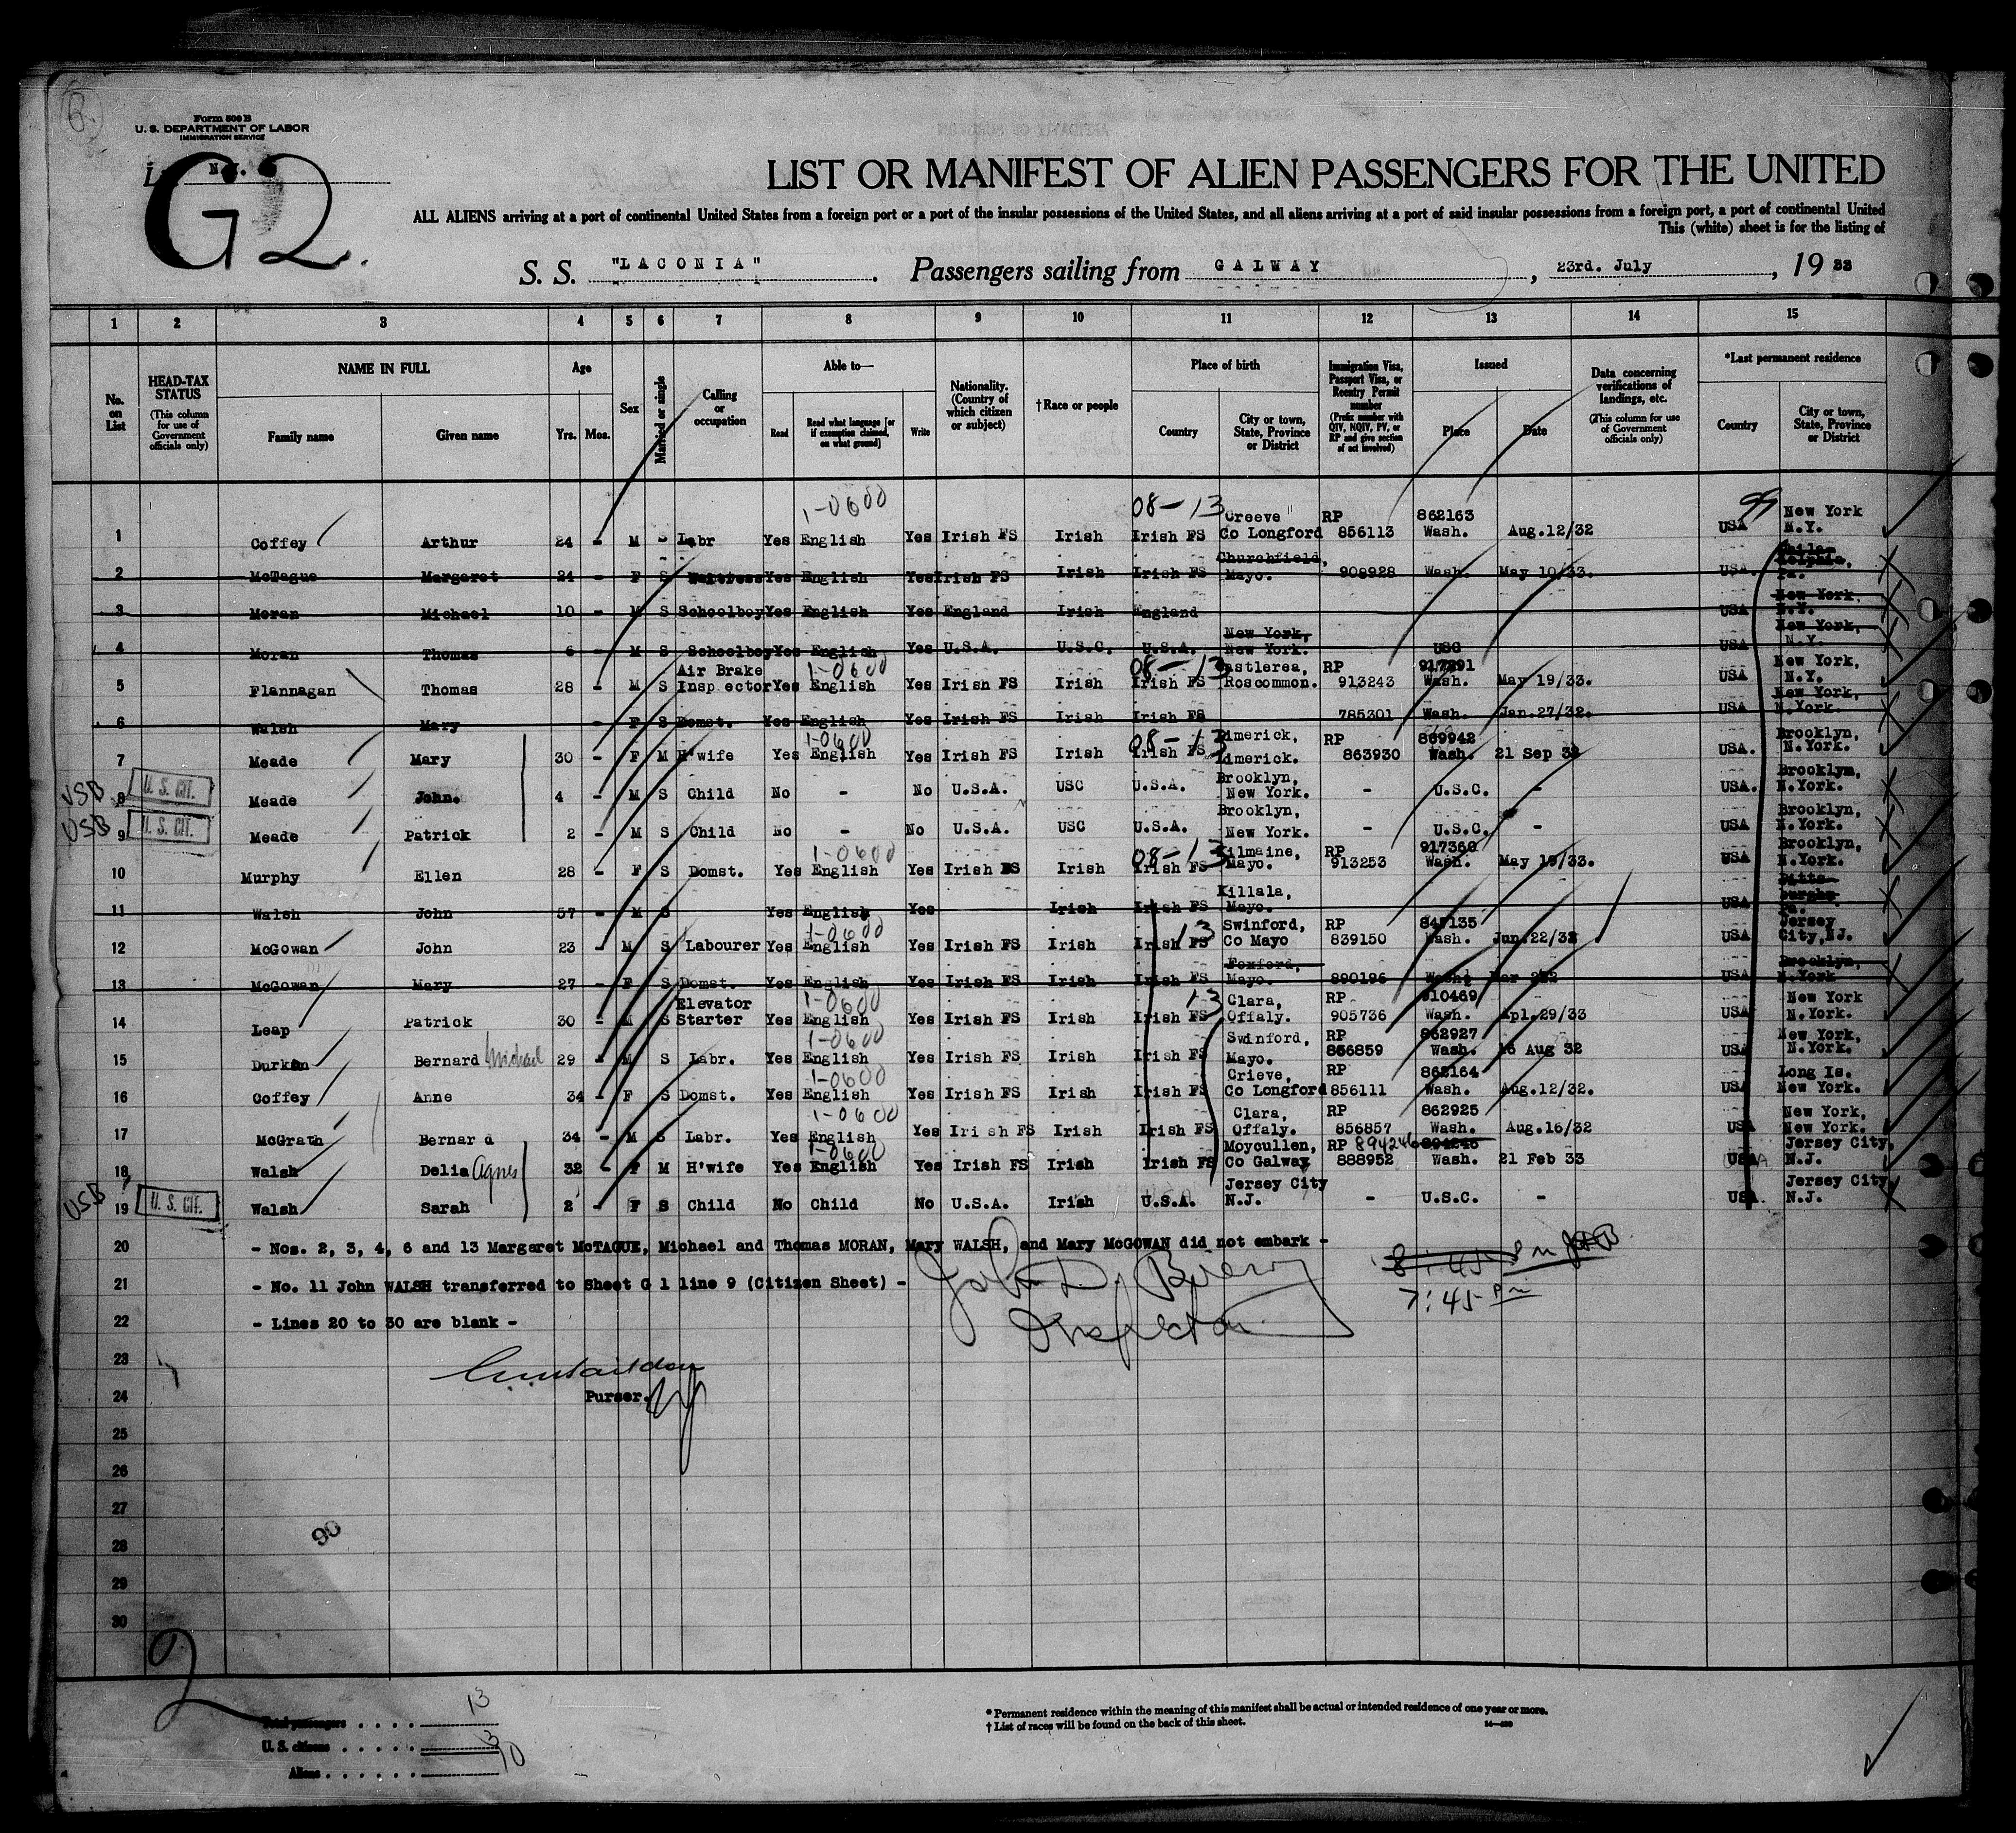 B.
Form 500 B
U. S. DEPARTMENT OF LABOR
IMMIGRATION SERVICE
N.Y.
G2.
LIST OR MANIFEST OF ALIEN PASSENGERS FOR THE UNITED
ALL ALIENS arriving at a port of continental United States from a foreign port or a port of the insular possessions of the United States, and all aliens arriving at a port of said insular possessions from a foreign port, a port of continental United
This (white) sheet is for the listing of
S. S. "LACONIA". Passengers sailing from GALWAY, 23rd. July, 19 33
1 2 3 4 5 6 7 8 9 10 11 12 13 14 15
No. on List
HEAD-TAX STATUS (This column for use of Government officials only)
NAME IN FULL Family name Given name
Age Yrs. Mos.
Sex
Married or single
Calling or occupation
Able to— Read Read what language [or if exemption claimed, on what ground] Write
Nationality. (Country of which citizen or subject)
† Race or people
Place of birth Country City or town, State, Province or District
Immigration Visa, Passport Visa, or Reentry Permit number (Prefix number with QIV, NQIV, PV, or RP and give section of act involved)
Issued Place Date
Data concerning verifications of landings, etc. (This column for use of Government officials only)
*Last permanent residence Country City or town, State, Province or District
1 Coffey Arthur 24 - M S Labr Yes English 1-0600 Yes Irish FS Irish Irish FS 08-13 Creeve Co Longford RP 856113 862163 Wash. Aug.12/32 USA New York N.Y.
2 McTague Margaret 24 - F S Waitress Yes English Yes Irish FS Irish Irish FS Churchfield, Mayo. 908928 Wash. May 10/33. USA. Philadelphia, Pa.
3 Moran Michael 10 - M S Schoolboy Yes English Yes England Irish England USA New York, N.Y.
4 Moran Thomas 6 - M S Schoolboy Yes English Yes U.S.A. U.S.C. U.S.A. New York, New York. USC USA New York, N.Y.
5 Flannagan Thomas 28 - M S Air Brake Inspector Yes English 1-0600 Yes Irish FS Irish Irish FS 08-13 Castlerea, Roscommon. RP 913243 917291 Wash. May 19/33. USA New York, N.Y.
6 Walsh Mary - F S Domst. Yes English Yes Irish FS Irish Irish FS 785301 Wash. Jan.27/32. USA New York, N.York.
7 Meade Mary 30 - F M H'wife Yes English 1-0600 Yes Irish FS Irish Irish FS 08-13 Limerick, Limerick. RP 863930 869942 Wash. 21 Sep 32 USA. Brooklyn, N.York.
USB 8 U. S. CIT. Meade John. 4 - M S Child No - No U.S.A. USC U.S.A. Brooklyn, New York. - U.S.C. - USA. Brooklyn, N.York.
USB 9 U. S. CIT. Meade Patrick 2 - M S Child No - No U.S.A. USC U.S.A. Brooklyn, New York. - U.S.C. - USA Brooklyn, N.York.
10 Murphy Ellen 28 - F S Domst. Yes English 1-0600 Yes Irish FS Irish Irish FS 08-13 Kilmaine, Mayo. RP 913253 917360 Wash. May 19/33. USA Brooklyn, N.York.
11 Walsh John 57 - M S Yes English Yes Irish Irish FS Killala, Mayo. USA Pittsburgh, Pa.
12 McGowan John 23 - M S Labourer Yes English 1-0600 Yes Irish FS Irish Irish FS 13 Swinford, Co Mayo RP 839150 845135 Wash. Jun.22/32 USA Jersey City,NJ.
13 McGowan Mary 27 - F S Domst. Yes English Yes Irish FS Irish Irish FS Foxford, Mayo. 890186 Wash. Mar USA Brooklyn, N.York
14 Leap Patrick 30 - M S Elevator Starter Yes English 1-0600 Yes Irish FS Irish Irish FS 13 Clara, Offaly. RP 905736 910469 Wash. Apl.29/33 USA New York N.York.
15 Durkan Bernard Michael 29 - M S Labr. Yes English 1-0600 Yes Irish FS Irish Irish FS Swinford, Mayo. RP 856859 862927 Wash. 16 Aug 32 USA New York, N.York.
16 Coffey Anne 34 - F S Domst. Yes English 1-0600 Yes Irish FS Irish Irish FS Crieve, Co Longford RP 856111 862164 Wash. Aug.12/32. USA Long Is. New York.
17 McGrath Bernard 34 - M S Labr. Yes English 1-0600 Yes Irish FS Irish Irish FS Clara, Offaly. RP 856857 862925 Wash. Aug.16/32 USA New York, New York.
18 Walsh Delia Agnes 32 - F M H'wife Yes English 1-0600 Yes Irish FS Irish Irish FS Moycullen, Co Galway RP 894246 888952 894246 Wash. 21 Feb 33 USA Jersey City, N.J.
USB 19 U. S. CIT. Walsh Sarah 2 - F S Child No Child No U.S.A. Irish U.S.A. Jersey City N.J. - U.S.C. - USA. Jersey City, N.J.
20 - Nos. 2, 3, 4, 6 and 13 Margaret McTAGUE, Michael and Thomas MORAN, Mary WALSH, and Mary McGOWAN did not embark -
8:45 Pm
21 - No. 11 John WALSH transferred to Sheet G 1 line 9 (Citizen Sheet) -
7:45 Pm
22 - Lines 20 to 30 are blank -
Inspector
23
24 Purser.
25
26
27
28
90
29
30
2
Total passengers . . . . 13
U. S. citizens . . . . . 3
Aliens . . . . . . 10
* Permanent residence within the meaning of this manifest shall be actual or intended residence of one year or more.
† List of races will be found on the back of this sheet.